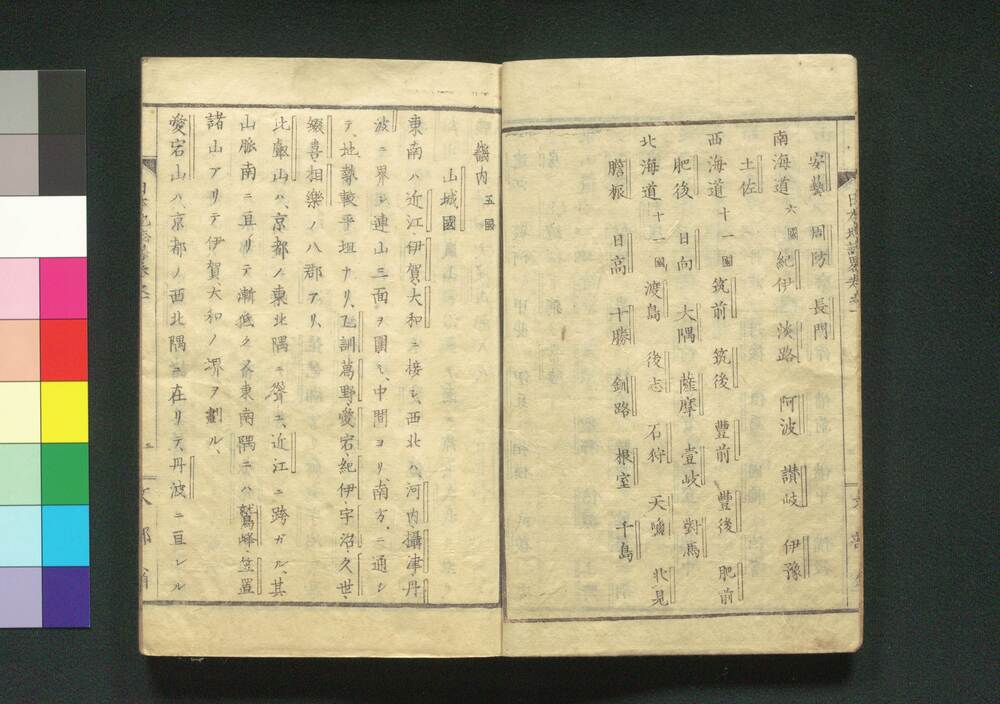 安藝 周防 長門
南海道 六國 紀伊 淡路 阿波 讃岐 伊豫
土佐
西海道 十一國 筑前 筑後 豐前 豐後 肥前
肥後 日向 大隅 薩摩 壹岐 對馬
北海道 十一國 渡島 後志 石狩 天鹽 北見
膽振 日高 十勝 釧路 根室 千島
畿内 五國
山城國
東南ハ近江、伊賀、大和ニ接シ、西北ハ河内、攝津、丹
波ニ界シ、連山三面ヲ圍ミ、中間ヨリ、南方ニ通シ
テ、地勢較平坦ナリ、乙訓葛野愛宕紀伊、宇治久世、
綴喜相樂ノ八郡アリ、
比叡山ハ、京都ノ東北隅ニ聳エ、近江ニ跨ガル、其
山脈南ニ亘リテ漸低ク、又東南隅ニハ鷲峰、笠置
諸山アリテ伊賀大和ノ堺ヲ劃ル、
愛宕山ハ、京都ノ西北隅ニ在リテ、丹波ニ亘レル
文部省